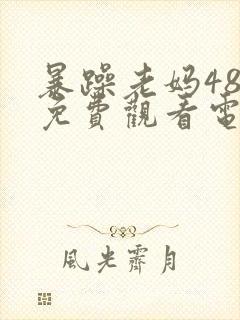 暴躁老妈48
免費觀看電
風光霽月